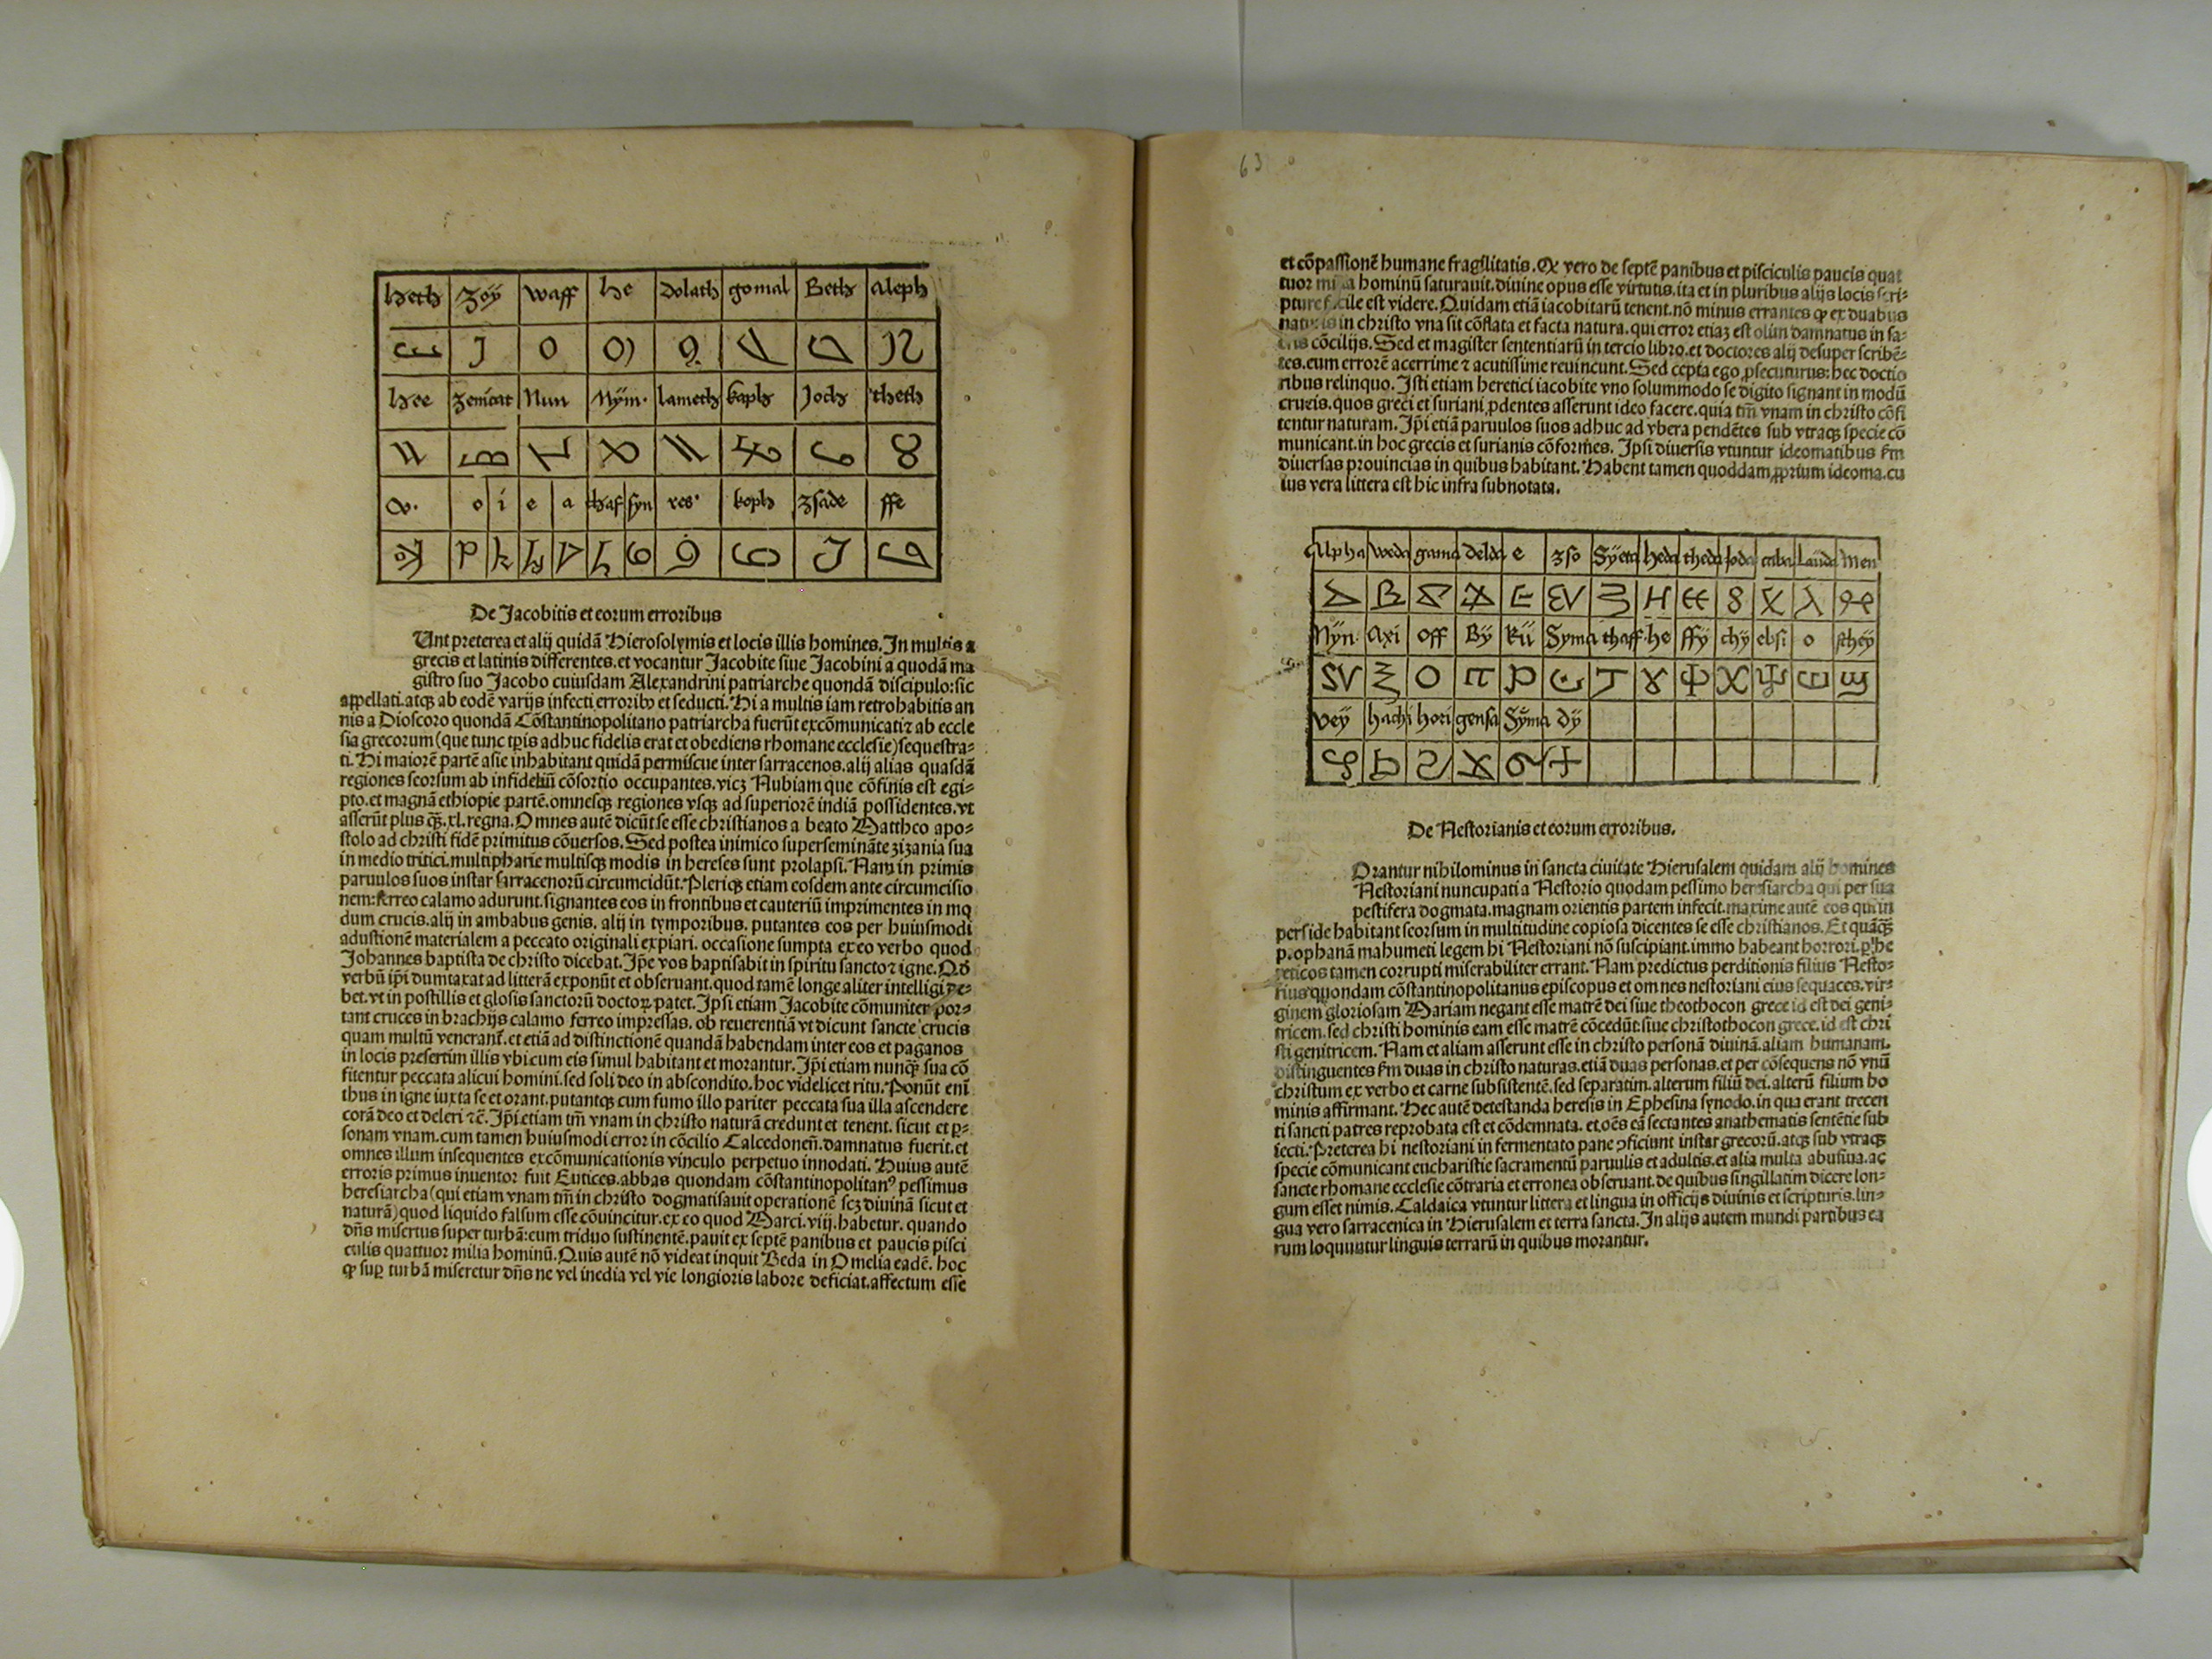 heth zoÿ waff he Dolath gomal Beth Aleph
hee zemcat Nun Mÿm· lameth kaph Joth theth
o i e a thaf syn res· koph zsade ffe
De Jacobitis et eorum erroribus
Unt preterea et alij quidã Hierosolymis et locis illis homines. In multis a
grecis et latinis differentes. et vocantur Jacobite siue Jacobini a quodã ma
gistro suo Jacobo cuiusdam Alexandrini patriarche quondã discipulo: sic
appellati. atqꝫ ab eodẽ varijs infecti erroribꝰ et seducti. Hi a multis iam retrohabitis an
nis a Dioscoro quondã Cõstantinopolitano patriarcha fuerũt excõmunicati ⁊ ab eccle
sia grecorum (que tunc tp̃is adhuc fidelis erat et obediens rhomane ecclesie) sequestra-
ti. Hi maiorẽ partẽ asie inhabitant quidã permiscue inter sarracenos. alij alias quasdã
regiones seorsum ab infideliũ cõsortio occupantes. vicꝫ Nubiam que cõfinis est egi-
pto. et magnã ethiopie partẽ. omnesqꝫ regiones vsqꝫ ad superiorẽ indiã possidentes. vt
asserũt plus qꝫ̃. xl. regna. Omnes autẽ dicũt se esse christianos a beato Mattheo apo-
stolo ad christi fidẽ primitus cõuersos. Sed postea inimico superseminãte zizania sua
in medio tritici. multipharie multisqꝫ modis in hereses sunt prolapsi. Nam in primis
paruulos suos instar sarracenorũ circumcidũt. Pleriqꝫ etiam eosdem ante circumcisio
nem: ferreo calamo adurunt. signantes eos in frontibus et cauteriũ imprimentes in mo
dum crucis. alij in ambabus genis. alij in tymporibus. putantes eos per huiusmodi
adustionẽ materialem a peccato originali expiari. occasione sumpta ex eo verbo quod
Johannes baptista de christo dicebat. Ip̃e vos baptisabit in spiritu sancto ⁊ igne. Qđ
verbũ ip̃i dumtaxat ad litterã exponũt et obseruant. quod tamẽ longe aliter intelligi de-
bet. vt in postillis et glosis sanctorũ doctoꝝ. patet. Ipsi etiam Jacobite cõmuniter por-
tant cruces in brachijs calamo ferreo impressas. ob reuerentiã vt dicunt sancte crucis
quam multũ venerant̃. et etiã ad distinctionẽ quandã habendam inter eos et paganos
in locis presertim illis vbicum eis simul habitant et morantur. Ip̃i etiam nunqꝫ̃ sua cõ
fitentur peccata alicui homini. sed soli deo in abscondito. hoc videlicet ritu. Ponũt eni
thus in igne iuxta se et orant. putantqꝫ cum fumo illo pariter peccata sua illa ascendere
corã deo et deleri ⁊c̃. Ip̃i etiam tm̃ vnam in christo naturã credunt et tenent. sicut et ꝑ-
sonam vnam. cum tamen huiusmodi error in cõcilio Calcedoneñ. damnatus fuerit. et
omnes illum insequentes excõmunicationis vinculo perpetuo innodati. Huius autẽ
erroris primus inuentor fuit Eutices. abbas quondam cõstantinopolitanꝰ pessimus
heresiarcha (qui etiam vnam tm̃ in christo dogmatisauit operationẽ scꝫ diuinã sicut et
naturã) quod liquido falsum esse cõuincitur. ex eo quod Marci. viij. habetur. quando
dñs misertus super turbã: eum triduo sustinentẽ. pauit ex septẽ panibus et paucis pisci
culis quattuor milia hominũ. Quis autẽ nõ videat inquit Beda in Omelia eadẽ. hoc
ꝙ suꝑ turbã miseretur dñs ne vel inedia vel vie longioris labore deficiat. affectum esse
63
et cõpassionẽ humane fragilitatis. Qꝫ vero de septẽ panibus et pisciculis paucis quat
tuor milia hominũ saturauit. diuine opus esse virtutis. ita et in pluribus alijs locis scri-
pture facile est videre. Quidam etiã iacobitarũ tenent. nõ minus errantes ꝙ ex duabus
naturis in christo vna sit cõflata et facta natura. qui error etiaꝫ est olim damnatus in sa-
cris cõcilijs. Sed et magister sententiarũ in tercio libro. et doctores alij desuper scribẽ-
tes. eum errorẽ acerrime ⁊ acutissime reuincunt. Sed cepta ego ꝓsecuturus: hec doctio
ribus relinquo. Isti etiam heretici iacobite vno solummodo se digito signant in modũ
crucis. quos greci et suriani ꝓdentes asserunt ideo facere. quia tm̃ vnam in christo cõfi
tentur naturam. Ip̃i etiã paruulos suos adhuc ad vbera pendẽtes sub vtraqꝫ specie cõ
municant. in hoc grecis et surianis cõformes. Ipsi diuersis vtuntur ideomatibus ẜm
diuersas prouincias in quibus habitant. Habent tamen quoddam ꝓprium ideoma. cu
ius vera littera est hic infra subnotata.
Alpha weda gama delda e zso Sÿeta heda theda Joda caba Lauda Men
Nÿn· axi off Bÿ Rü Syma thaff· he ffÿ chÿ ebsi o schey
veÿ hachi hori gensa Sÿma dÿ
De Nestorianis et eorum erroribus.
Orantur nihilominus in sancta ciuitate Hierusalem quidam alij homines
Nestoriani nuncupati a Nestorio quodam pessimo heresiarcha qui per sua
pestifera dogmata. magnam orientis partem infecit. maxime autẽ eos qui in
perside habitant seorsum in multitudine copiosa dicentes se esse christianos. Et quãqꝫ̃
prophanã mahumeti legem hi Nestoriani nõ suscipiant. immo habeant horrori. ꝑ he
reticos tamen corrupti miserabiliter errant. Nam predictus perditionis filius Nesto-
rius quondam cõstantinopolitanus episcopus et omnes nestoriani eius sequaces. vir-
ginem gloriosam Mariam negant esse matrẽ dei siue theothocon grece id est dei geni-
tricem. sed christi hominis eam esse matrẽ cõcedũt: siue christothocon grece. id est chri
sti genitricem. Nam et aliam asserunt esse in christo personã diuinã. aliam humanam.
distinguentes ẜm duas in christo naturas. etiã duas personas. et per cõsequens nõ vnũ
christum ex verbo et carne subsistentẽ. sed separatim. alterum filiũ dei. alterũ filium ho
minis affirmant. Hec autẽ detestanda heresis in Ephesina synodo. in qua erant trecen
ti sancti patres reprobata est et cõdemnata. et oẽs eã sectantes anathematis sentẽtie sub
iecti. Preterea hi nestoriani in fermentato pane ↄficiunt instar grecorũ. atqꝫ sub vtraqꝫ
specie cõmunicant eucharistie sacramentũ paruulis et adultis. et alia multa abusiua. ac
sancte rhomane ecclesie cõtraria et erronea obseruant. de quibus singillatim dicere lon-
gum esset nimis. Caldaica vtuntur littera et lingua in officijs diuinis et scripturis. lin-
gua vero sarracenica in Hierusalem et terra sancta. In alijs autem mundi partibus ea
rum loquuutur linguis terrarũ in quibus morantur.